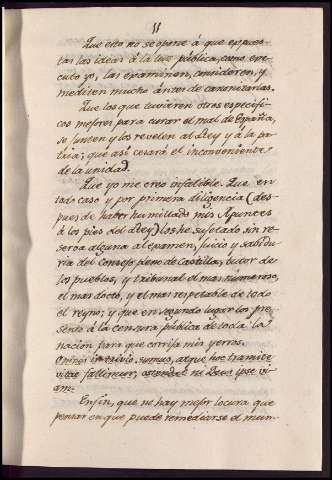 11
Que esto no se opone á que expues-
tas las ideas á la luz pública, como exe-
cuto yo, las examinen, consideren, y
mediten mucho ántes de canonizarlas.
Que los que tuvieren otros específi-
cos mejores para curar el mal de España,
se junten y los revelen al Rey y á la pa-
tria; que así cesará el inconveniente
de la unidad.
Que yo me creo infalible. Que en
todo caso y por primera diligencia (des-
pues de haber humillado mis Apuntes
á los pies del Rey) los he sujetado sin re-
serva alguna al exámen, juicio y sabidu-
ría del Consejo pleno de Castilla, tutor de
los pueblos, y tribunal el mas numeroso,
el mas docto, y el mas respetable de todo
el reyno; y que en segundo lugar los pre-
sento á la censura pública de toda la
nacion para que corrija mis yerros.
Omnes in salvio sumus, atque hoc tramite
vitae fallimur, ostendat ni Deus ipse vi-
am.
Enfin, que no hay mejor locura que
pensar en que puede remediarse el mun-